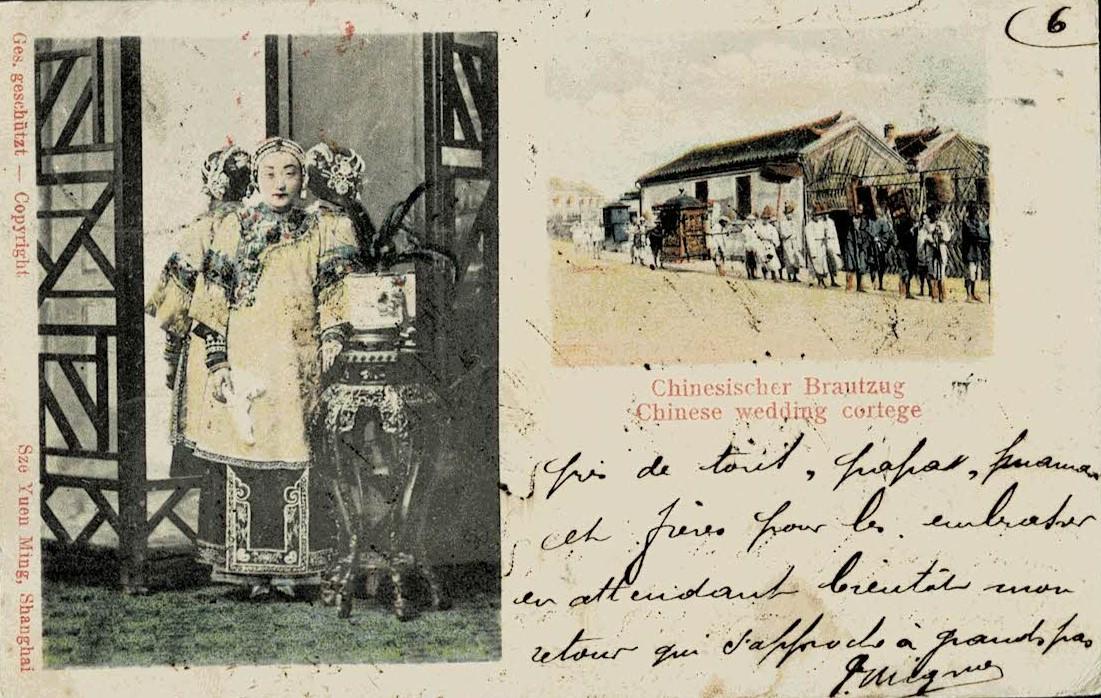 6
Ges. geschützt — Copyright
Sze Yuen Ming, Shanghai
Chinesischer Brautzug
Chinese wedding cortege
près de , papa, maman
et frères pour les embrasser
en attendant bientôt mon
retour qui s'approche à grands pas